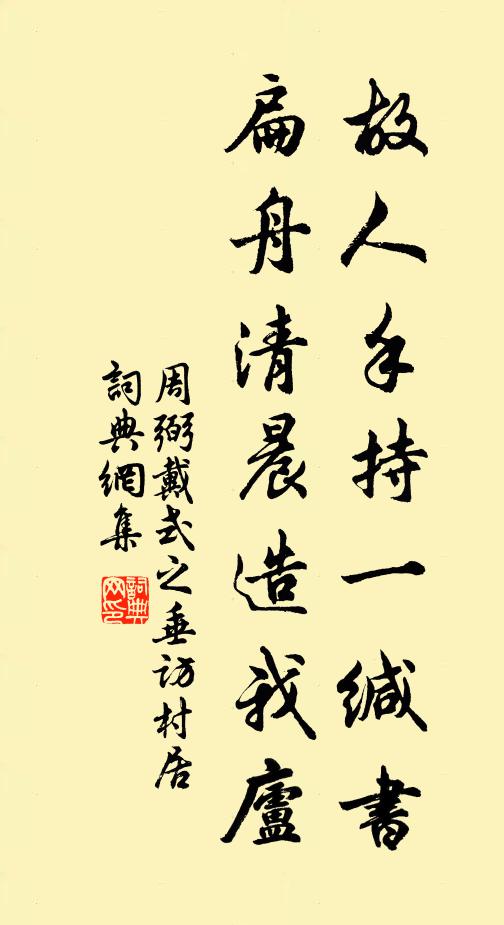 故人手持一緘書
扁舟清晨造我廬
周弼戴式之垂訪村居
詞典網集
詞典
网印